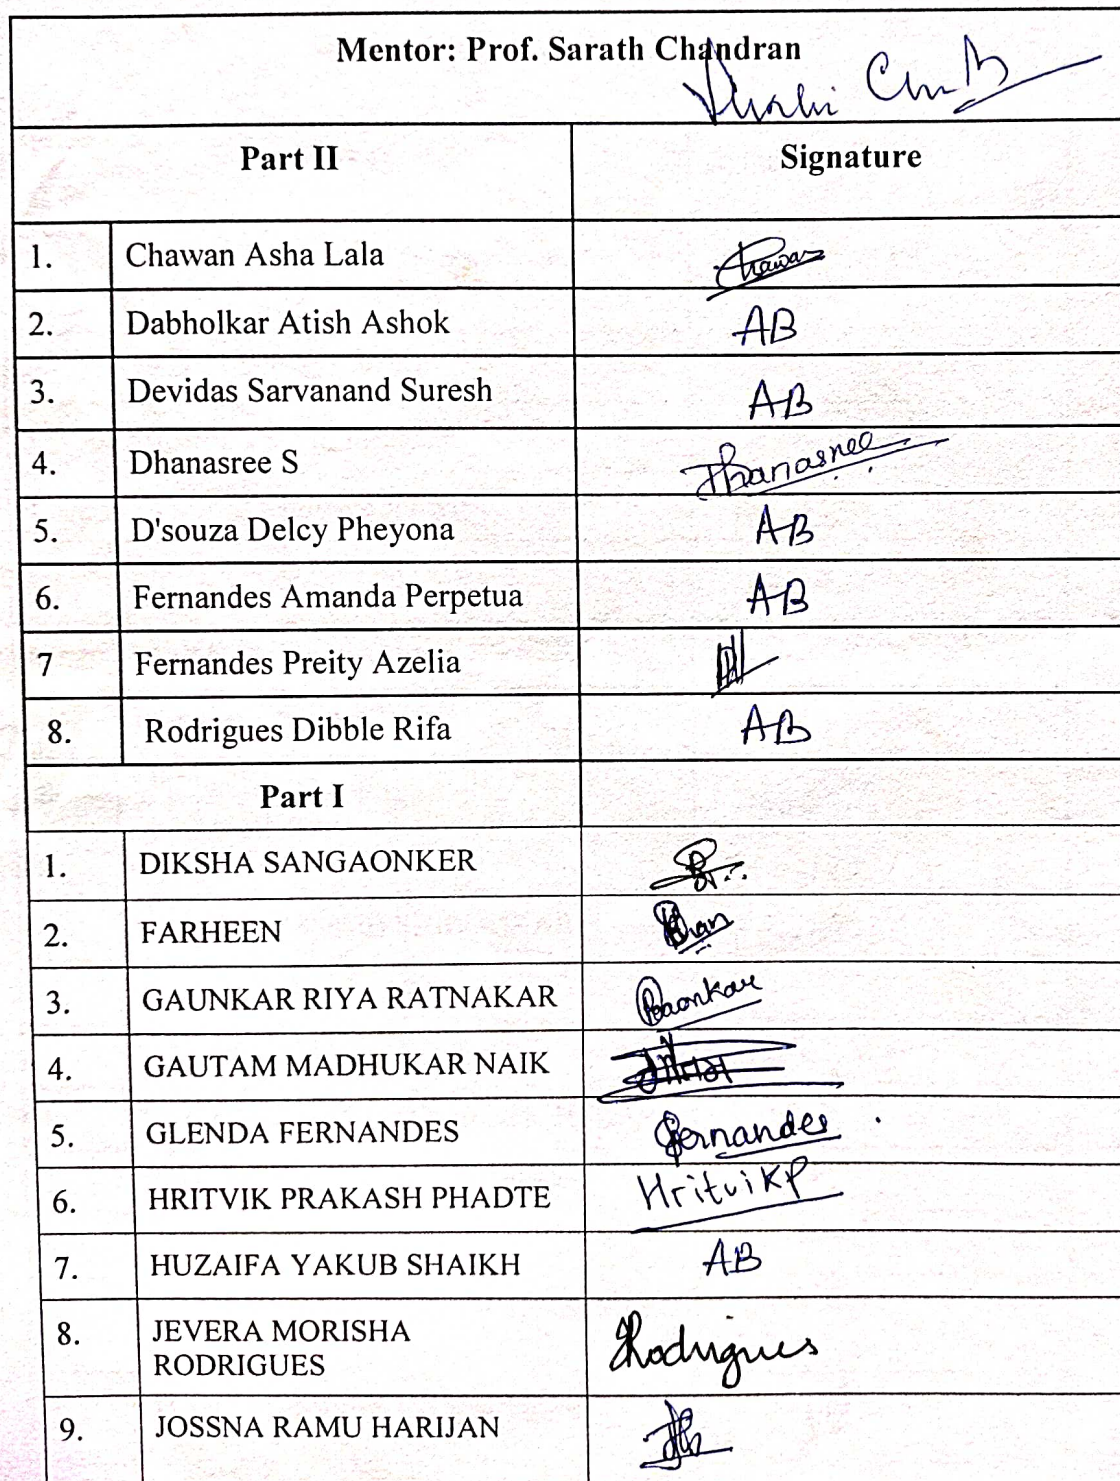 Mentor: Prof. Sarath Chandran
Part II Signature
1. Chawan Asha Lala Chawan
2. Dabholkar Atish Ashok AB
3. Devidas Sarvanand Suresh AB
4. Dhanasree S Dhanasree
5. D'souza Delcy Pheyona AB
6. Fernandes Amanda Perpetua AB
7 Fernandes Preity Azelia
8. Rodrigues Dibble Rifa AB
Part I
1. DIKSHA SANGAONKER
2. FARHEEN Khan
3. GAUNKAR RIYA RATNAKAR Gaonkar
4. GAUTAM MADHUKAR NAIK
5. GLENDA FERNANDES Fernandes
6. HRITVIK PRAKASH PHADTE HritviKP
7. HUZAIFA YAKUB SHAIKH AB
8. JEVERA MORISHA Rodrigues
RODRIGUES
9. JOSSNA RAMU HARIJAN